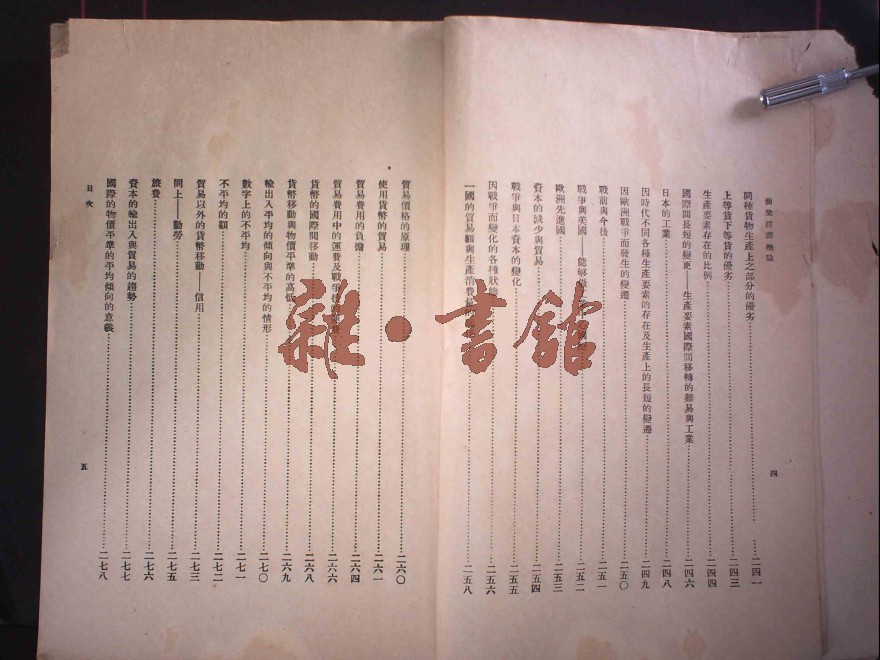 商業經濟概論
四
同種貨物生產上之部分的優劣……二四一
上等貨下等貨的優劣……二四三
生產要素存在的比例……二四四
國際間長短的變更——生產要素國際間移轉的難易與工業……二四六
日本的工業……二四八
因時代不同各種生產要素的存在及生產上的長短的變遷……二四九
因歐洲戰爭而發生的變遷……二五〇
戰前與今後……二五一
戰爭與美國——能够……二五二
歐洲先進國……二五三
資本的減少與貿易……二五四
戰爭與日本資本的變化……二五五
因戰爭而變化的各種狀態……二五六
一國的貿易額與生產消費……二五八
貿易價格的原理……二六〇
使用貨幣的貿易……二六一
貿易費用的負擔……二六四
貿易費用中的運費及戰爭……二六六
貨幣的國際間移動……二六八
貨幣移動與物價平準的高低……二六九
輸出入平均的傾向與不平均的情形……二七〇
數字上的不平均……二七一
不平均的額……二七二
貿易以外的貨幣移動——信用……二七三
同上——勤勞……二七五
旅費……二七六
資本的輸出入與貿易的趨勢……二七七
國際的物價平準的平均傾向的意義……二七八
目次
五
雜·書館